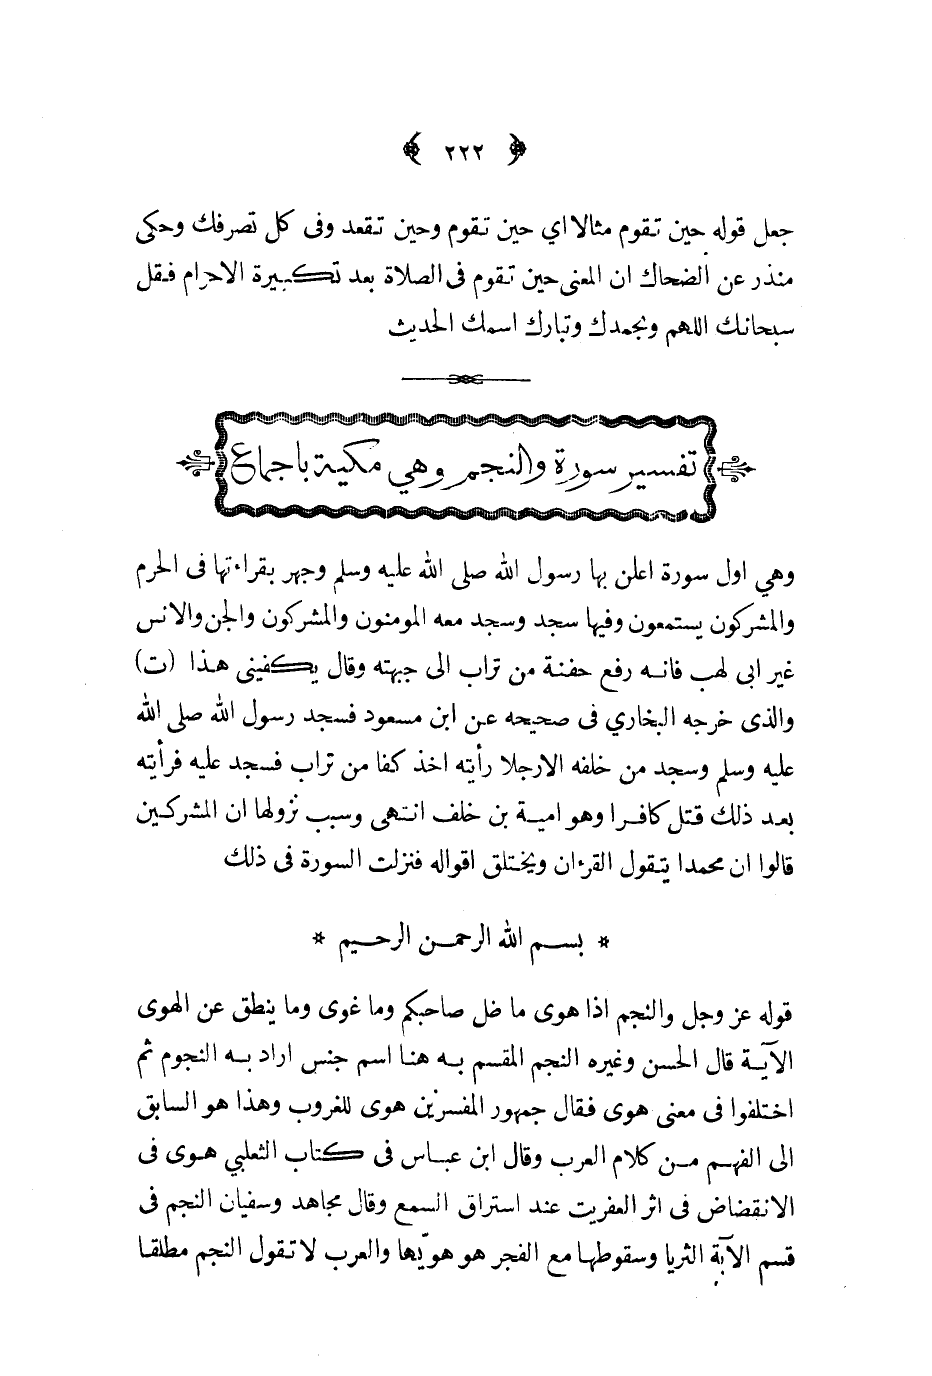 ﴿ ٢٢٢ ﴾
جعل قوله حين تقوم مثالا اي حين تقوم وحين تقعد وفى كل تصرفك وحكى
منذر عن الضحاك ان المعنى حين تقوم فى الصلاة بعد تكبيرة الاحرام فقل
سبحانك اللهم وبحمدك وتبارك اسمك الحديث
تفسير سورة والنجم وهي مكية باجماع
وهي اول سورة اعلن بها رسول الله صلى الله عليه وسلم وجهر بقراءتها فى الحرم
والمشركون يستمعون وفيها سجد وسجد معه المومنون والمشركون والجن والانس
غير ابى لهب فانه رفع حفنة من تراب الى جبهته وقال يكفينى هذا (ت)
والذى خرجه البخاري فى صحيحه عن ابن مسعود فسجد رسول الله صلى الله
عليه وسلم وسجد من خلفه الارجلا رأيته اخذ كفا من تراب فسجد عليه فرأيته
بعد ذلك قتل كافرا وهو امية بن خلف انتهى وسبب نزولها ان المشركين
قالوا ان محمدا يتقول القرءان ويختلق اقواله فنزلت السورة فى ذلك
* بسم الله الرحمن الرحيم *
قوله عز وجل والنجم اذا هوى ما ضل صاحبكم وما غوى وما ينطق عن الهوى
الآية قال الحسن وغيره النجم المقسم به هنا اسم جنس اراد به النجوم ثم
اختلفوا فى معنى هوى فقال جمهور المفسرين هوى للغروب وهذا هو السابق
الى الفهم من كلام العرب وقال ابن عباس فى كتاب الثعلبي هوى فى
الانقضاض فى اثر العفريت عند استراق السمع وقال مجاهد وسفيان النجم فى
قسم الآية الثريا وسقوطها مع الفجر هو هويّها والعرب لا تقول النجم مطلقا